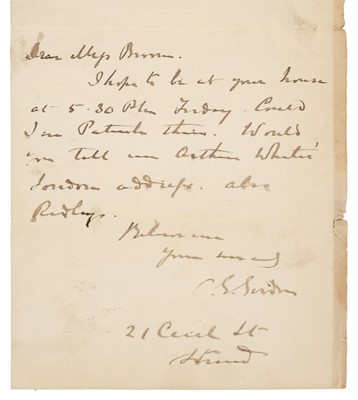 Dear Miss Brown.
I hope to be at your house
at 5.30 PM Friday. Could
I see Patrick there. Would
you tell me Arthur
London address. also
Ridleys.
Believe me
yours
C. G. Gordon
21 Cecil St
Strand